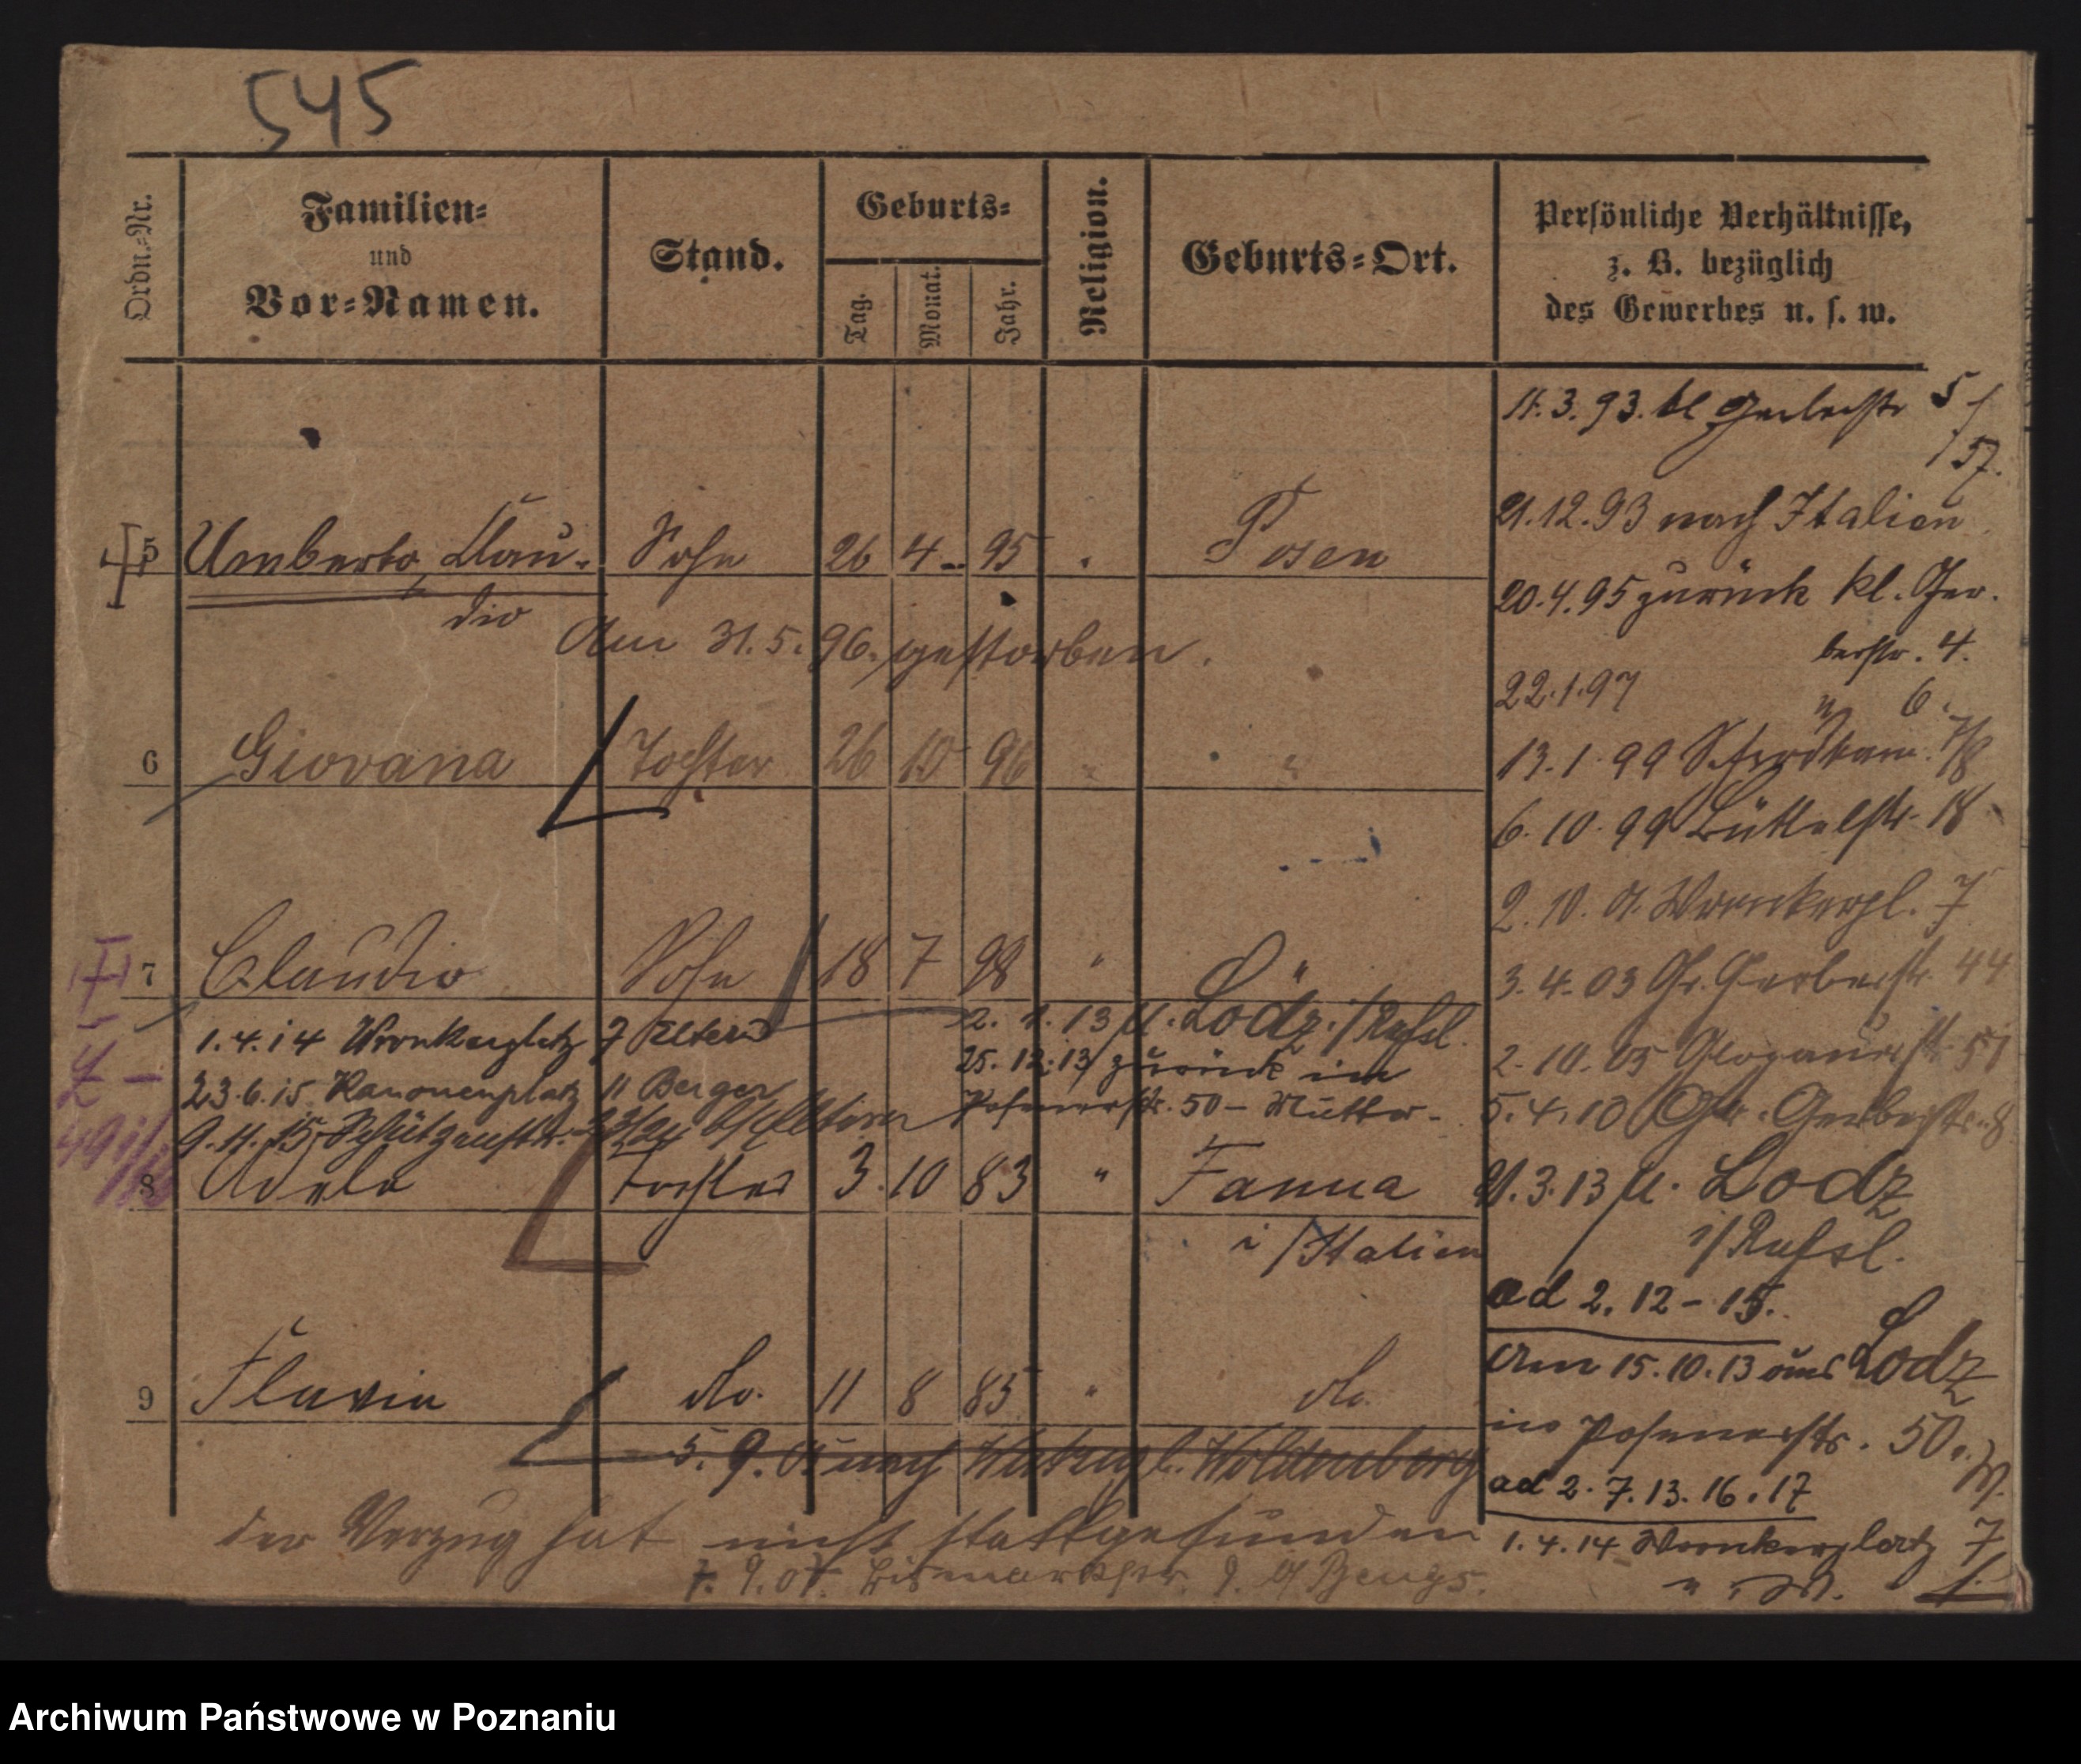 545
Ordn.-Nr.
Familien-
und
Vor-Namen.
Stand.
Geburts-
Tag.
Monat.
Jahr.
Religion.
Geburts-Ort.
Persönliche Verhältnisse,
z. B. bezüglich
des Gewerbes u. s. w.
5 Umberto, Clau- Sohn 26 4 95 Posen
dio
Am 31.5.96. gestorben.
6 Giovana Tochter 26 10 96 "
7 Claudio Sohn 18 7 98 " "
2. 1. 13 u. Lodz i/Rußl.
1.4.14 Wronkerplatz 7 Eltern
25. 12. 13 zurück in
23.6.15 Kanonenplatz 11 Berger
Posenerstr. 50 - Mutter -
9.11.15 Schützenstr. 23/24 b/Eltern
8 Adele Tochter 3. 10 83 " Fanna
i/Italien
9 Flavia do. 11 8 85 " do.
5. 9. nach Woldenberg
der Verzug hat nicht stattgefunden
7. 9. 07. Bismarckstr. 9.
3.93. kl Gerberstr 5/
57.
21.12.93 nach Italien
20.4.95 zurück kl. Ger-
berstr. 4.
22.1.97 " 6.
13.1.99 7/8
6.10.99 Büttelstr. 18
2.10.01. Wronkerpl. 7
3.4.03 Gr. Gerberstr. 44
2.10.05 Glogauerstr. 51
5.4.10 Gr. Gerberstr. 8
21.3.13 u. Lodz
i/Rußl.
ad 2. 12-15.
Am 15.10.13 aus Lodz
in Posenerstr. 50.
ad 2. 7. 13. 16. 17
1.4.14 Wronkerplatz 7
Archiwum Państwowe w Poznaniu